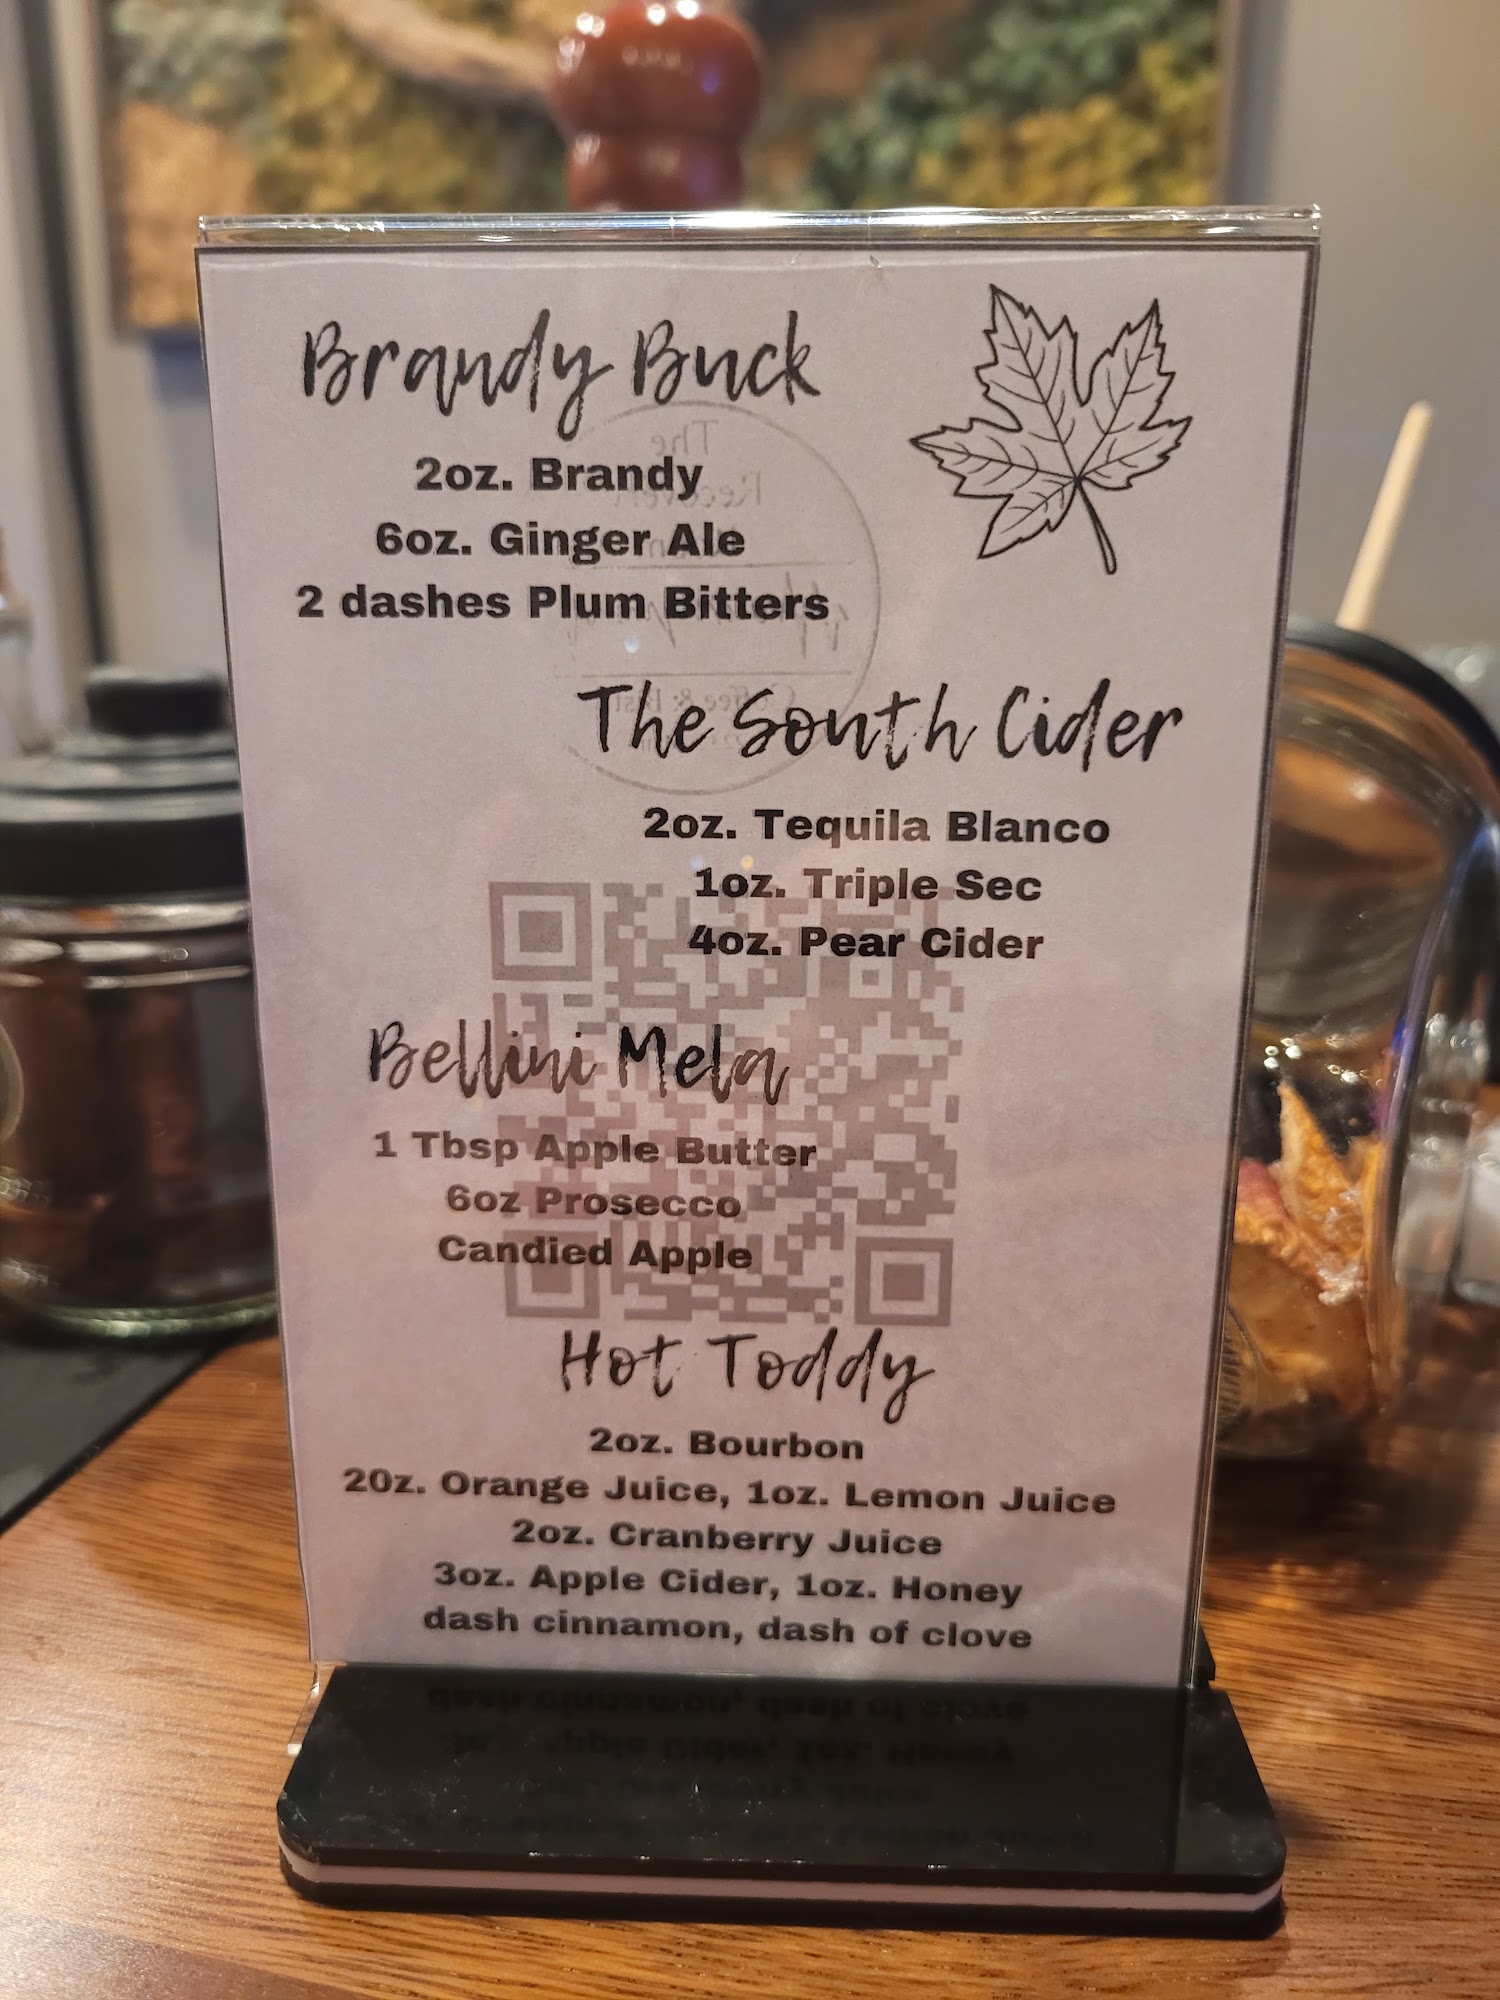 Brandy Buck
2oz. Brandy
6oz. Ginger Ale
2 dashes Plum Bitters
The South Cider
2oz. Tequila Blanco
1oz. Triple Sec
4oz. Pear Cider
Bellini Mela
1 Tbsp Apple Butter
6oz Prosecco
Candied Apple
Hot Toddy
2oz. Bourbon
20z. Orange Juice, 1oz. Lemon Juice
2oz. Cranberry Juice
3oz. Apple Cider, 1oz. Honey
dash cinnamon, dash of clove